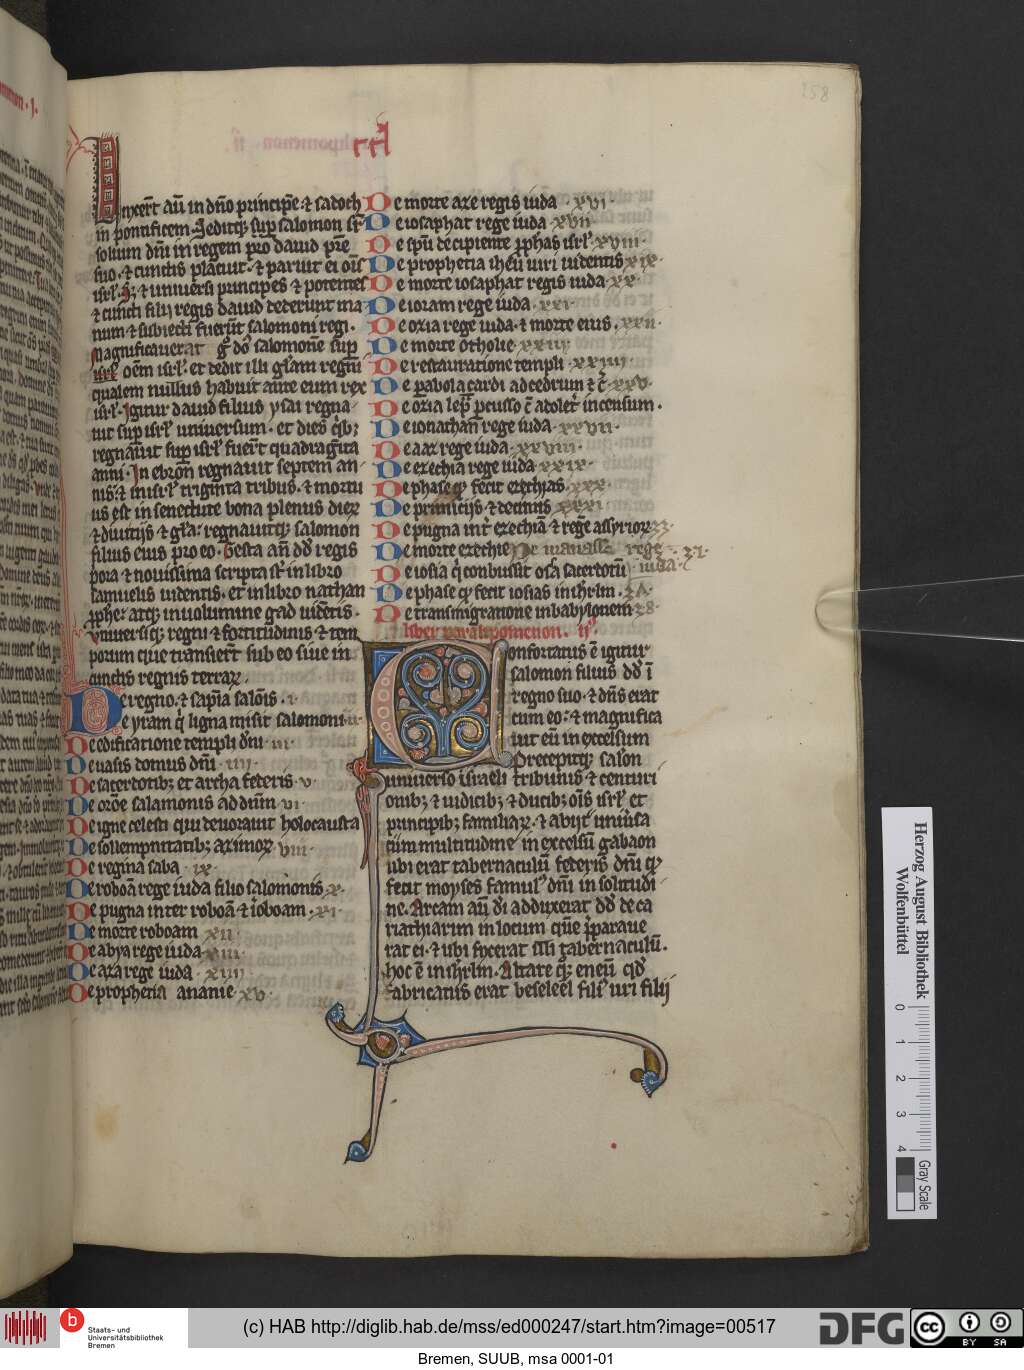 258
nxert aũ in dño principẽ ⁊ sadoch
in pontificem. Seditqꝫ suꝑ salomon sr̃
solium dñi in regem pro dauid pr̃e
suo. ⁊ cunctis placuit. ⁊ paruit ei oĩs
isrl̃. ⁊ uniuersi principes ⁊ potentes
⁊ cuncti filij regis dauid dederunt ma
num ⁊ subiecti fuerũt salomoni regi.
Magnificauerat g̊ dõ salomonẽ suꝑ
oẽm isrl̃. et dedit illi gl̃am regni
qualem nullus habuit ante eum rex
isrl̃. Igitur dauid filius ysai regna
uit suꝑ isrl̃ uniuersum. et dies q̃bꝫ
regnauit suꝑ isrl̃ fuerũt quadragĩta
anni. In ebron regnauit septem an
nis. ⁊ in isrl̃ triginta tribus. ⁊ mortu
us est in senectute bona plenus dieꝝ
⁊ diuitijs ⁊ gl̃a. regnauitqꝫ salomon
filius eius pro eo. Gesta aũ dd̃ regis
pora ⁊ nouissima scripta sr̃ in libro
samuelis uidentis. et in libro nathan
ꝓphe. atqꝫ in uolumine gad uidẽtis.
Vniuersiqꝫ regni ⁊ fortitudinis ⁊ tem
porum que transierũt sub eo siue in
cunctis regnis terraꝝ.
De regno. ⁊ sapĩa salõis. i.
De yram q̃ ligna misit salomoni. ii.
De edificatione templi dñi. iii.
De uasis domus dñi. iiii.
De sacerdotibꝫ et archa federis. v.
De orõe salamonis ad dñm vi.
De igne celesti qui deuorauit holocausta
De sollempnitatibꝫ azimoꝝ viii.
De regina saba. ix.
De roboã rege iuda filio salomonis. x.
De pugna inter roboã ⁊ ieroboam. xi.
De morte roboam xii.
De abya rege iuda. xiii.
De aza rege iuda. xiiii.
De prophetia ananie. xv.
De morte aze regis iuda. xvi.
De iosaphat rege iuda. xvii
De spũ decipiente ꝓphas isrl̃. xviii.
De prophetia iheu uiri uidentis xix.
De morte iosaphat regis iuda. xx.
De ioram rege iuda. xxi.
De ozia rege iuda. ⁊ morte eius. xxii.
De morte otholie. xxiii.
De restauratione templi. xxiiii.
De ꝑabola cardi ad cedrum ⁊ c̃. xxv.
De ozia lep̃ ꝑcusso c̃ adolet incensum.
De ionathan rege iuda. xxvii.
De aaz rege iuda. xxviii.
De ezechia rege iuda. xxix.
De phase qd̃ fecit ezechias. xxx.
De primicijs ⁊ decimis. xxxi.
De pugna int̃ ezechiã ⁊ regẽ assyrioꝝ 32.
De morte ezechie De manasse rege. 33.
De iosia q̃ conbussit ossa sacerdotũ iuda.
De phase qd̃ fecit iosias in ihrlm. 34.
De transmigratione in babylonem 38.
liber paralipomenon. ii.
Confortatus ẽ igitur
salomon filius dd̃ ĩ
regno suo. ⁊ dñs erat
cum eo. ⁊ magnifica
uit eũ in excelsum
Precepitqꝫ salon
uniuerso israeli tribunis ⁊ centuri
onibꝫ ⁊ iudicibꝫ ⁊ ducibꝫ oĩs isrl̃ et
principibꝫ familiaꝝ. ⁊ abijt uniũsa
cũm multitudine in excelsũ gabaon
ubi erat tabernaculũ federis dñi qd̃
fecit moyses famulꝰ dñi in solitudi
ne. Arcam aũ dĩ adduxerat dd̃ de ca
riathiarim in locum quẽ p̃paraue
rat ei. ⁊ ubi fixerat illi tabernaculũ.
hoc ẽ in ihrlm. Altare qꝫ eneũ qd̃
fabricatus erat beseleel filiꝰ uri filij
Herzog August Bibliothek
Wolfenbüttel
0 1 2 3 4
Gray Scale
b
Staats- und
Universitätsbibliothek
Bremen
(c) HAB http://diglib.hab.de/mss/ed000247/start.htm?image=00517
DFG
cc BY SA
Bremen, SUUB, msa 0001-01